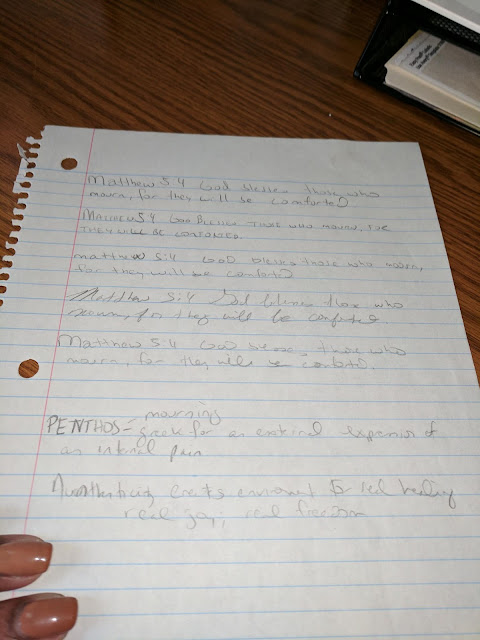 Matthew 5:4 God blesses those who
mourn, for they will be comforted
MATTHEW 5:4 GOD BLESSES THOSE WHO MOURN, FOR
THEY WILL BE COMFORTED.
matthew 5:4 God blesses those who mourn,
for they will be comforted
Matthew 5:4 God blesses those who
mourn, for they will be comforted.
Matthew 5:4 God those who
mourn, for they will be comforted.
mourning
PENTHOS = greek for an external expression of
an internal pain
creates enviroment for real healing
real joy, real freedom